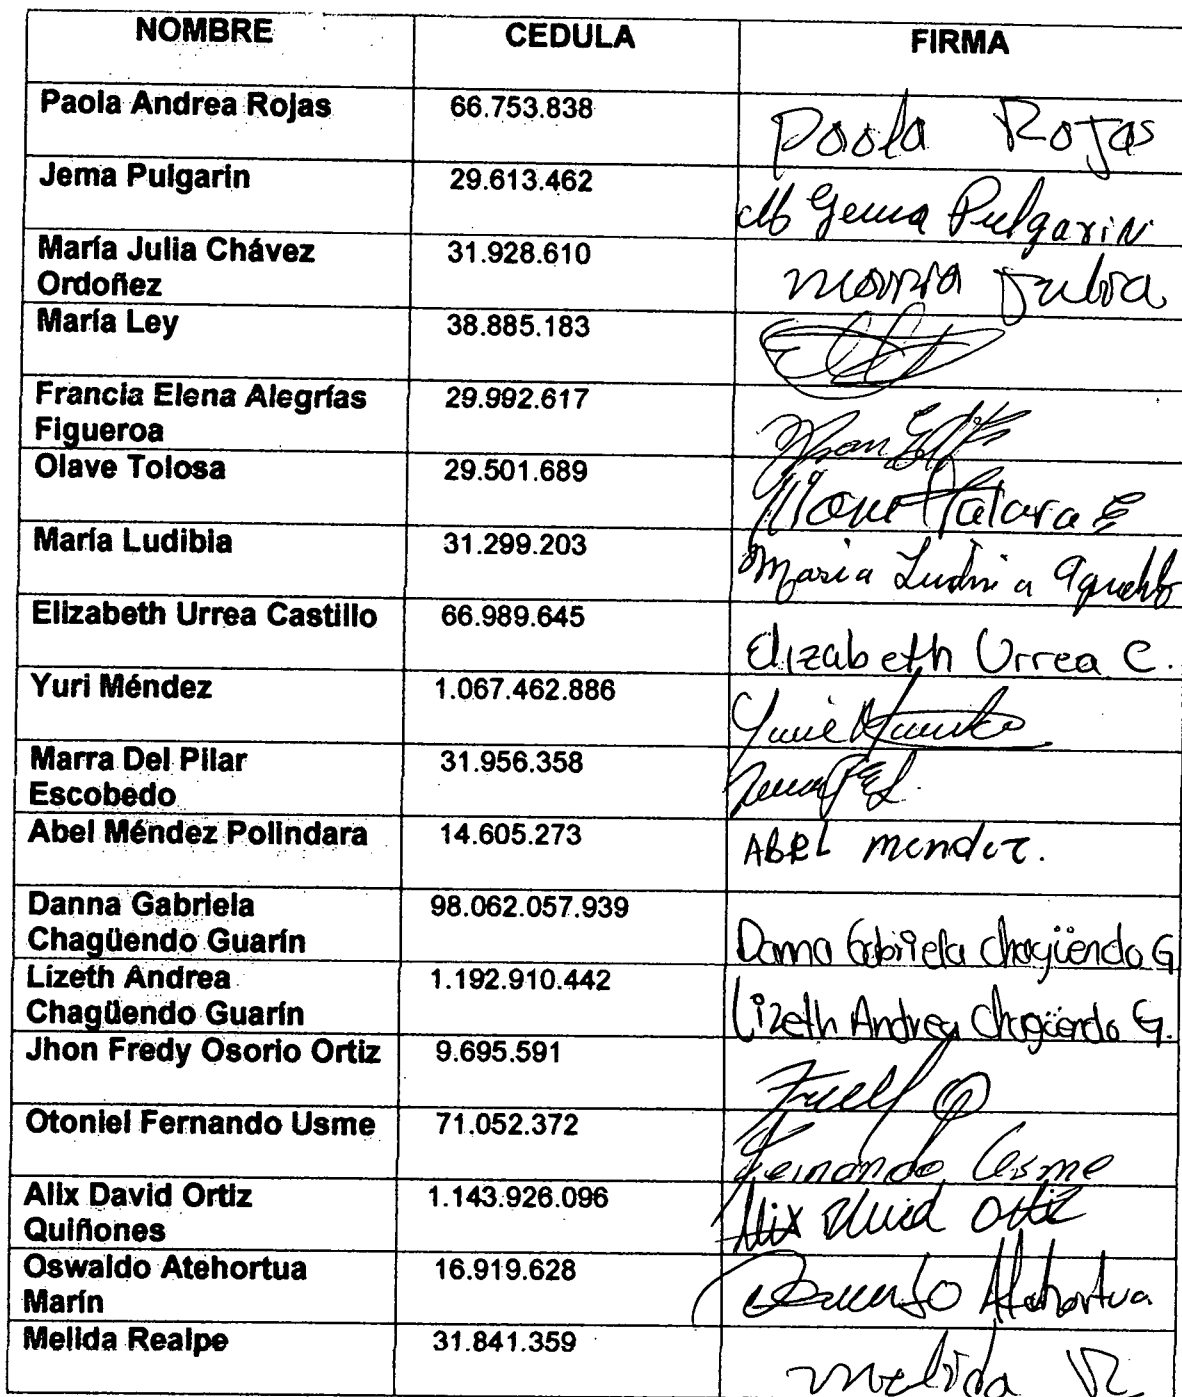 NOMBRE CEDULA FIRMA
Paola Andrea Rojas 66.753.838 Paola Rojas
Jema Pulgarin 29.613.462 M Gema Pulgarin
María Julia Chávez 31.928.610 Maria Julia
Ordoñez
María Ley 38.885.183
Francia Elena Alegrías 29.992.617
Figueroa
Olave Tolosa 29.501.689
María Ludibia 31.299.203 Maria
Elizabeth Urrea Castillo 66.989.645 Elizabeth Urrea C.
Yuri Méndez 1.067.462.886
Marra Del Pilar 31.956.358
Escobedo
Abel Méndez Polindara 14.605.273 ABEL Mendez.
Danna Gabriela 98.062.057.939
Chagüendo Guarín Danna Gabriela Chagüendo G
Lizeth Andrea 1.192.910.442
Chagüendo Guarín Lizeth Andrea Chagüendo G.
Jhon Fredy Osorio Ortiz 9.695.591
Otoniel Fernando Usme 71.052.372 Fernando Usme
Alix David Ortiz 1.143.926.096 Alix David Ortiz
Quiñones
Oswaldo Atehortua 16.919.628 Atehortua
Marín
Melida Realpe 31.841.359 Melida R